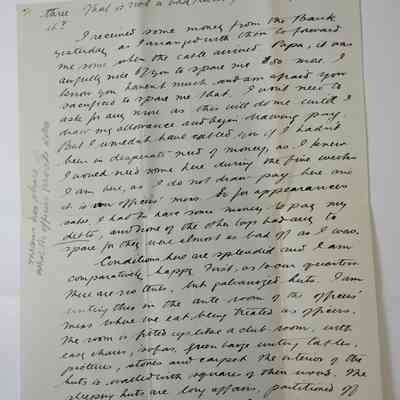 three. That is not a bad
it?
I received some money from the Bank
yesterday as I arranged with them to forward
me some when the cable arrived Papa, it was
awfully nice of you to spare me £30 more. I
know you haven't much and am afraid you
sacrificed to spare me that. I won't need to
ask for any more as this will do me until I
draw my allowance and begin drawing pay.
But I wouldn't have cabled you if I hadn't
been in desperate need of money, as I knew
I would need some here during the five weeks
I am here, as I do not draw pay here and
it is an officers' mess. So for appearances
sake I had to have some money to pay my
debts, and none of the other boys had any to
spare for they were almost as bad off as I was.
Conditions here are splendid and I am
comparatively happy. First, as to our quarters
there are no tents, but galvanized huts. I am
writing this in the ante room of the officers'
mess where we eat being treated as officers.
The room is fitted up like a club room, with
easy chairs, sofas, green baize writing tables,
pictures, stoves and carpet. The interior of the
huts is walled with squares of thin wood. The
sleeping huts are long affairs, partitioned off